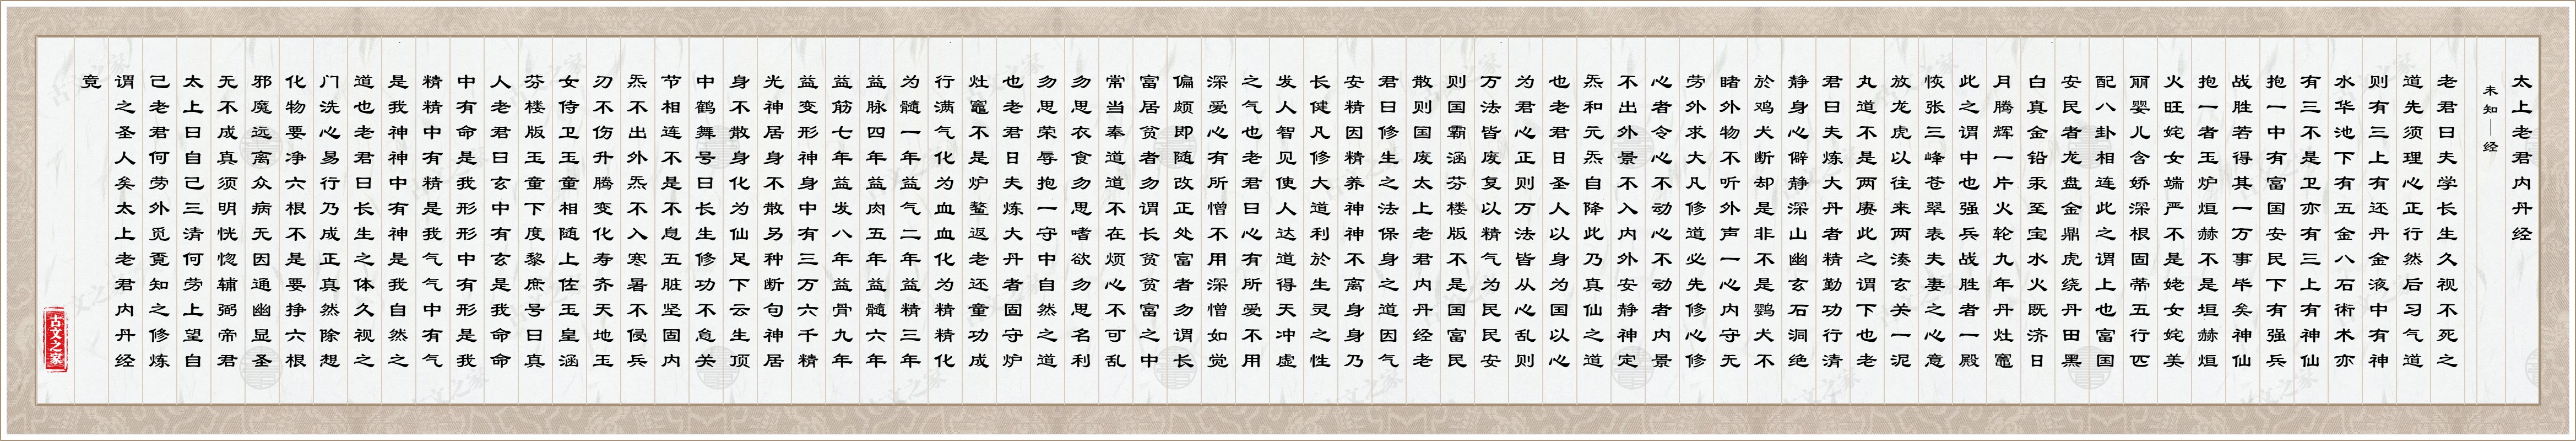 太上老君内丹经
未知｜经
老君曰夫学长生久视不死之
道先须理心正行然后习气道
则有三上有还丹金液中有神
水华池下有五金八石術术亦
有三不是卫亦有三上有神仙
抱一中有富国安民下有强兵
战胜若得其一万事毕矣神仙
抱一者玉炉烜赫不是垣赫烜
火旺姹女端严不是姥女姹美
丽婴儿含娇深根固蒂五行匹
配八卦相连此之谓上也富国
安民者龙盘金鼎虎绕丹田黑
白真金铅汞至宝水火既济日
月腾辉一片火轮九年丹灶竈
此之谓中也强兵战胜者一殿
恢张三峰苍翠表夫妻之心意
放龙虎以往来两湊玄关一泥
丸道不是两赓此之谓下也老
君曰夫炼大丹者精勤功行清
静身心僻静深山幽玄石洞绝
於鸡犬断却是非不是鹦犬不
睹外物不听外声一心内守无
劳外求大凡修道必先修心修
心者令心不动心不动者内景
不出外景不入内外安静神定
炁和元炁自降此乃真仙之道
也老君曰圣人以身为国以心
为君心正则万法皆从心乱则
万法皆废复以精气为民民安
则国霸涵芬楼版不是国富民
散则国废太上老君内丹经老
君曰修生之法保身之道因气
安精因精养神神不离身身乃
长健凡修大道利於生灵之性
发人智见使人达道得天冲虚
之气也老君曰心有所爱不用
深爱心有所憎不用深憎如觉
偏颇即随改正处富者勿谓长
富居贫者勿谓长贫贫富之中
常当奉道道不在烦心不可乱
勿思衣食勿思嗜欲勿思名利
勿思荣辱抱一守中自然之道
也老君曰夫炼大丹者固守炉
灶竈不是炉鏊返老还童功成
行满气化为血血化为精精化
为髓一年益气二年益精三年
益脉四年益肉五年益髓六年
益筋七年益发八年益骨九年
益变形神身中有三万六千精
光神居身不散另种断句神居
身不散身化为仙足下云生顶
中鹤舞号曰长生修功不怠关
节相连不是不息五脏坚固内
炁不出外炁不入寒暑不侵兵
刃不伤升腾变化寿齐天地玉
女侍卫玉童相随上佐玉皇涵
芬楼版玉童下度黎庶号曰真
人老君曰玄中有玄是我命命
中有命是我形形中有形是我
精精中有精是我气气中有气
是我神神中有神是我自然之
道也老君曰长生之体久视之
门洗心易行乃成正真然除想
化物要净六根不是要挣六根
邪魔远离众病无因通幽显圣
无不成真须明恍惚辅弼帝君
太上曰自己三清何劳上望自
己老君何劳外觅竟知之修炼
谓之圣人矣太上老君内丹经
竟
古文之家